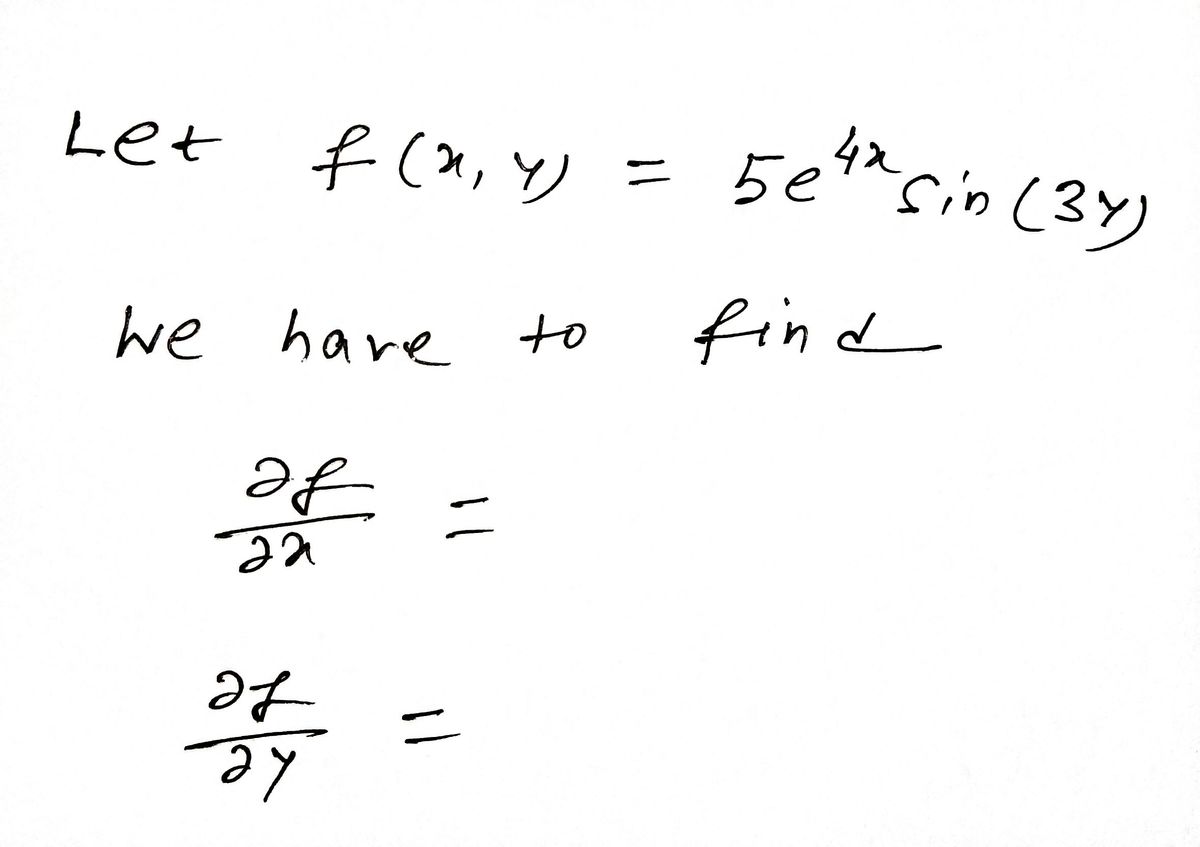 Let f(x, y) = 5e^{4x} sin(3y)
We have to find
∂f/∂x =
∂f/∂y =